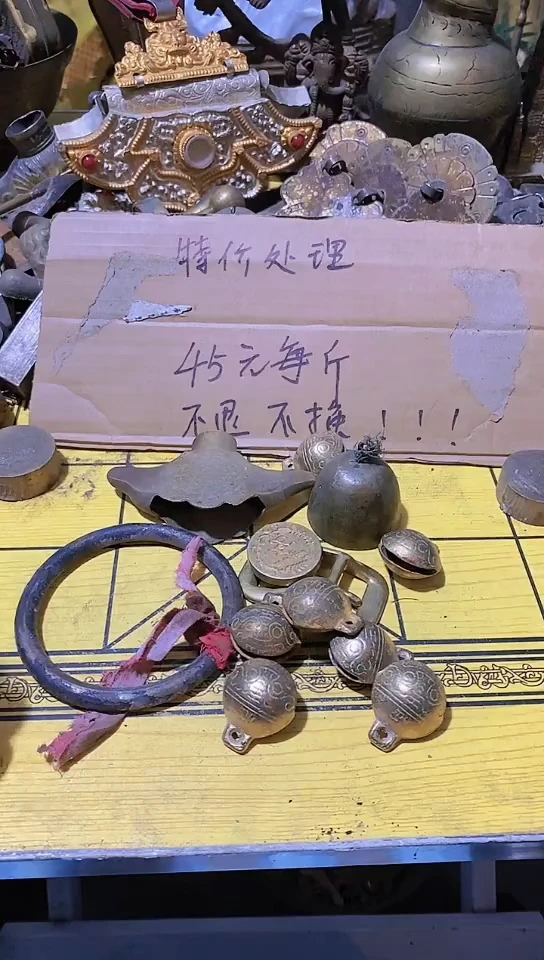 特价处理
45元每斤
不退不换！！！